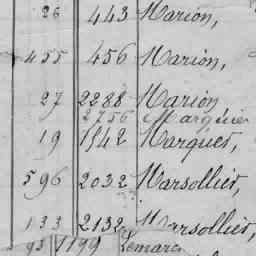 26 443 Marion,
455 456 Marion,
27 2288 Marion
2756 Marquier
19 1542 Marques,
596 2032 Marsollier,
133 2132 Marsollier,
93 1199 Lemarc